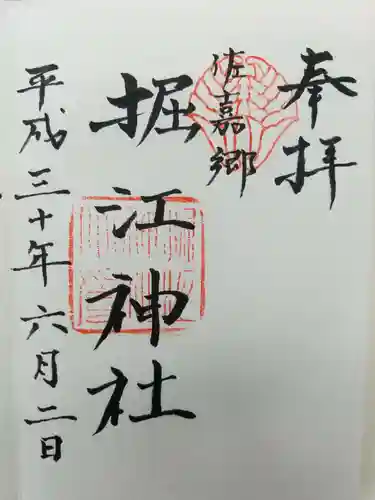 奉拝
佐嘉郷
掘江神社
平成三十年六月二日